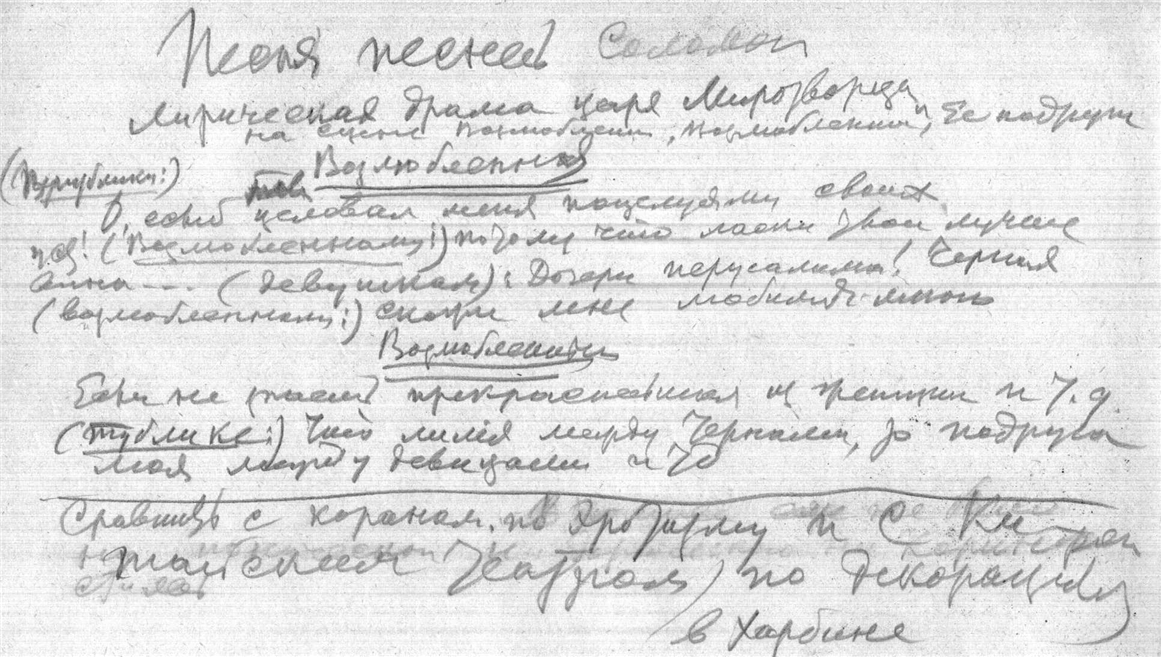 Песня песней Соломон
Лирическая драма царя Миротворца
на сцене Возлюбленн, Возлюбленный, Ее подруги
Возлюбленная
(Публике:)
О, если б целовал меня поцелуями своих
уст! (Возлюбленному:) потому что ласки твои лучше
вина --- (девушкам): Дочери иерусалима! Черная
(возлюбленному:) скажи мне любимый мною
Возлюбленный
Если не знаешь прекраснейшая из женщин и т. д.
(Публике:) Что лилия между тернами, то подруга
моя между девицами и то
Сравнить с кораном. по эротизму и с Ки
тайским театром, по декорациям
в Харбине